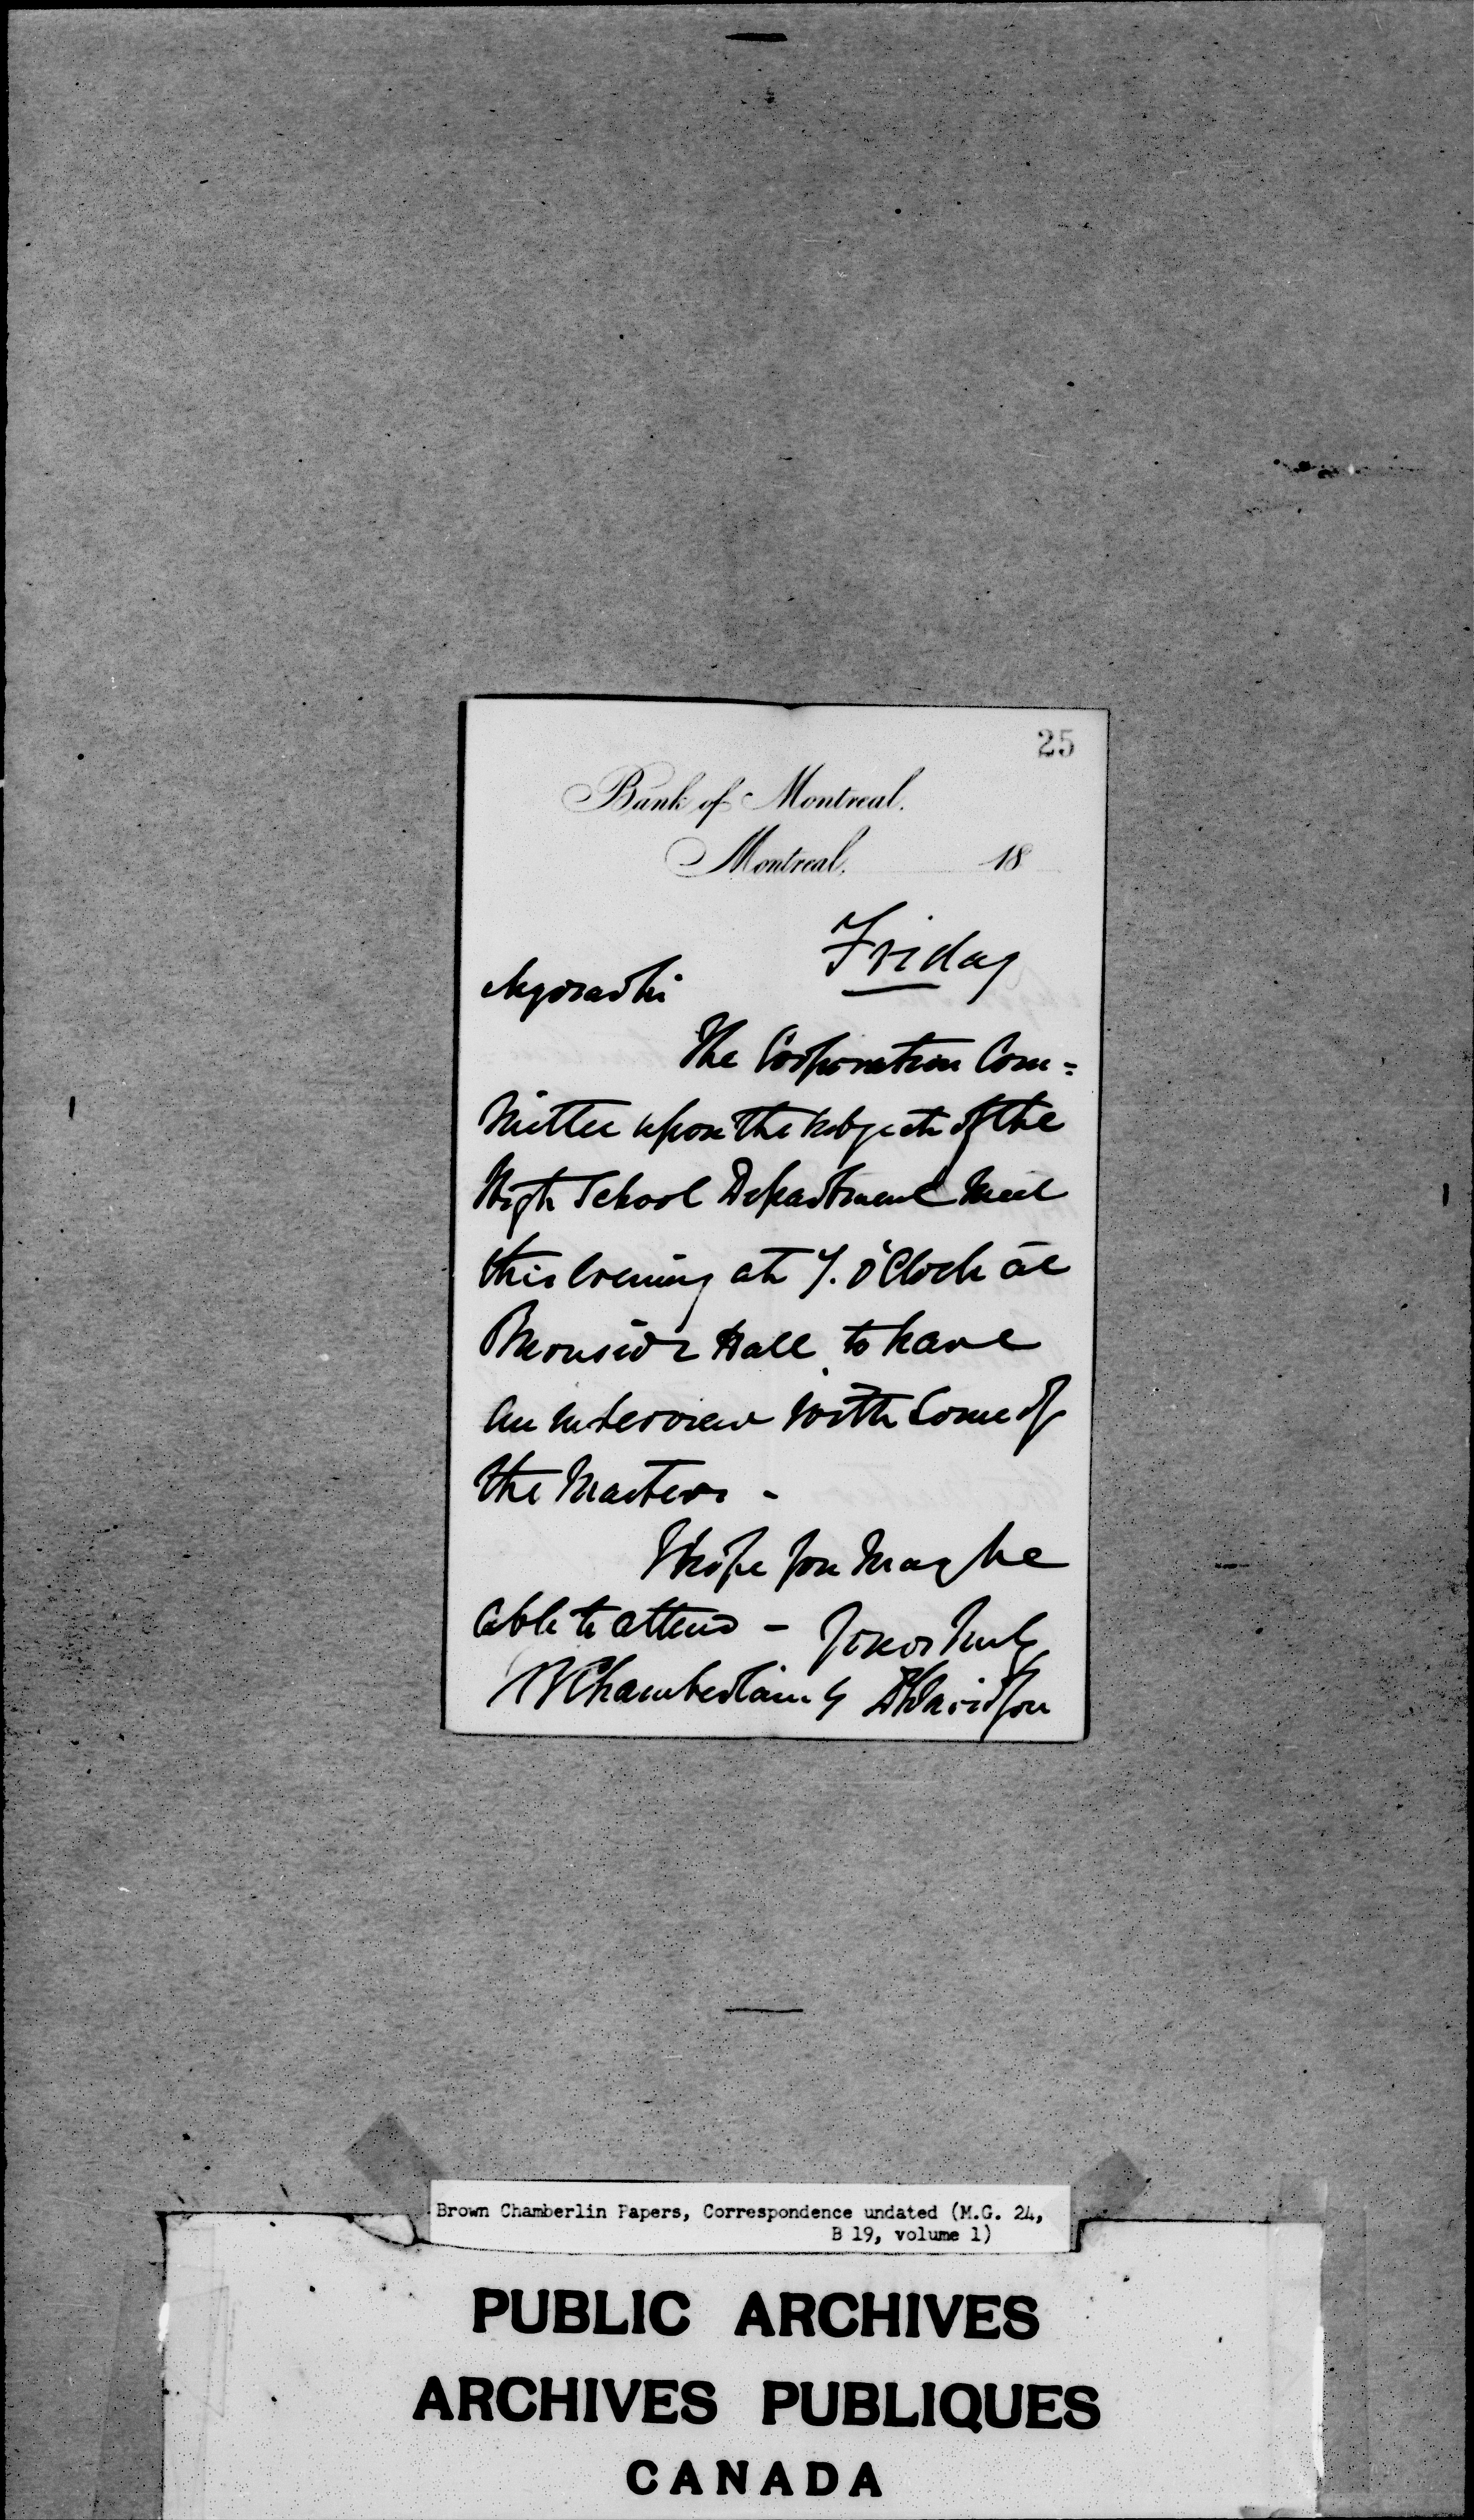 25
Bank of Montreal.
Montreal, 18
Friday
My dear Sir
The Corporation Com=
mittee upon the subject of the
High School Department meet
this Evening at 7. O'Clock at
Burnside Hall to have
an interview with some of
the Masters -
I hope you may be
able to attend - Yours truly
B Chamberlain DDavidson
Brown Chamberlin Papers, Correspondence undated (M.G. 24,
B 19, volume 1)
PUBLIC ARCHIVES
ARCHIVES PUBLIQUES
CANADA